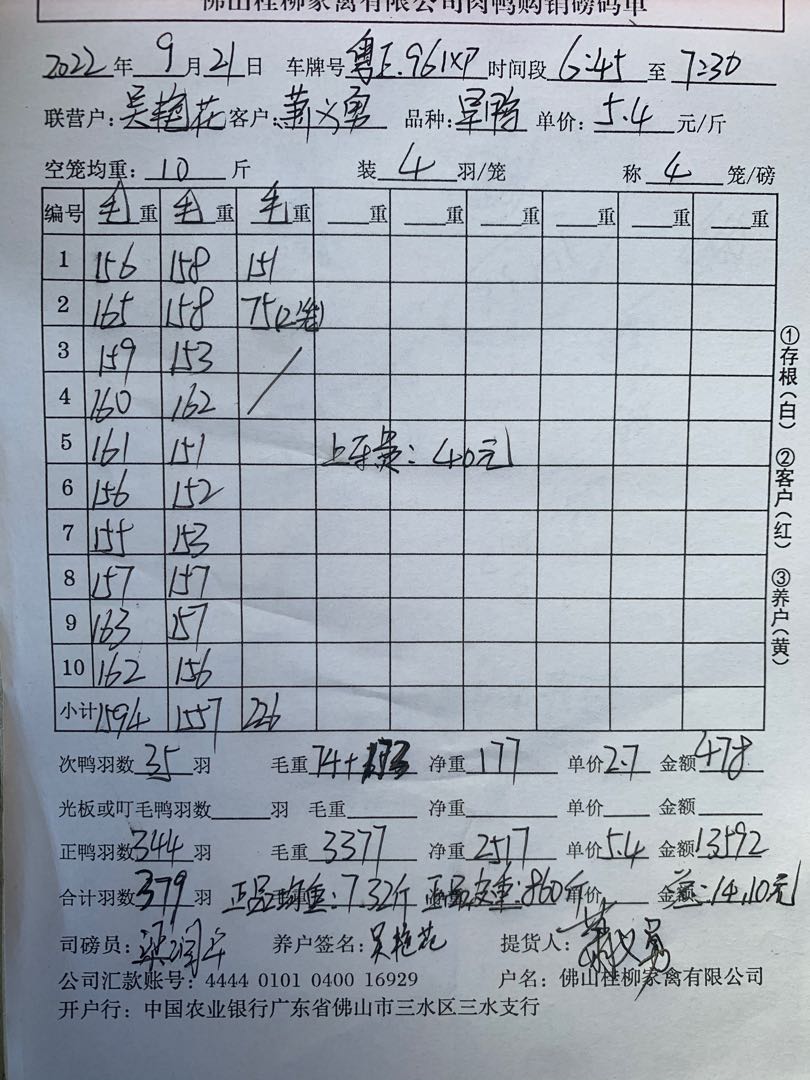 佛山桂柳家禽有限公司肉鸭购销磅码单
2022年 9月21日 车牌号 粤E.961XP 时间段 6:45 至 7:30
联营户:吴艳花 客户:萧义勇 品种: 单价: 5.4 元/斤
空笼均重: 10 斤 装 4 羽/笼 称 4 笼/磅
编号 毛重 毛重 毛重 重 重 重 重 重 重
1 156 158 151
2 165 158 75(2笼)
3 159 153
4 160 162
5 161 151 上车费: 40元
6 156 152
7 155 153
8 157 157
9 163 157
10 162 156
小计 1594 1557 226
次鸭羽数 35 羽 毛重 74+ 净重 177 单价 2.7 金额 478
光板或叮毛鸭羽数 羽 毛重 净重 单价 金额
正鸭羽数 344 羽 毛重 3377 净重 2517 单价 5.4 金额 13592
合计羽数 379 羽 正品均重:7.32斤 正品皮重:860斤 单价 金额 :14,10元
司磅员: 养户签名: 吴艳花 提货人: 萧义勇
公司汇款账号: 4444 0101 0400 16929 户名: 佛山桂柳家禽有限公司
开户行: 中国农业银行广东省佛山市三水区三水支行
①存根(白) ②客户(红) ③养户(黄)